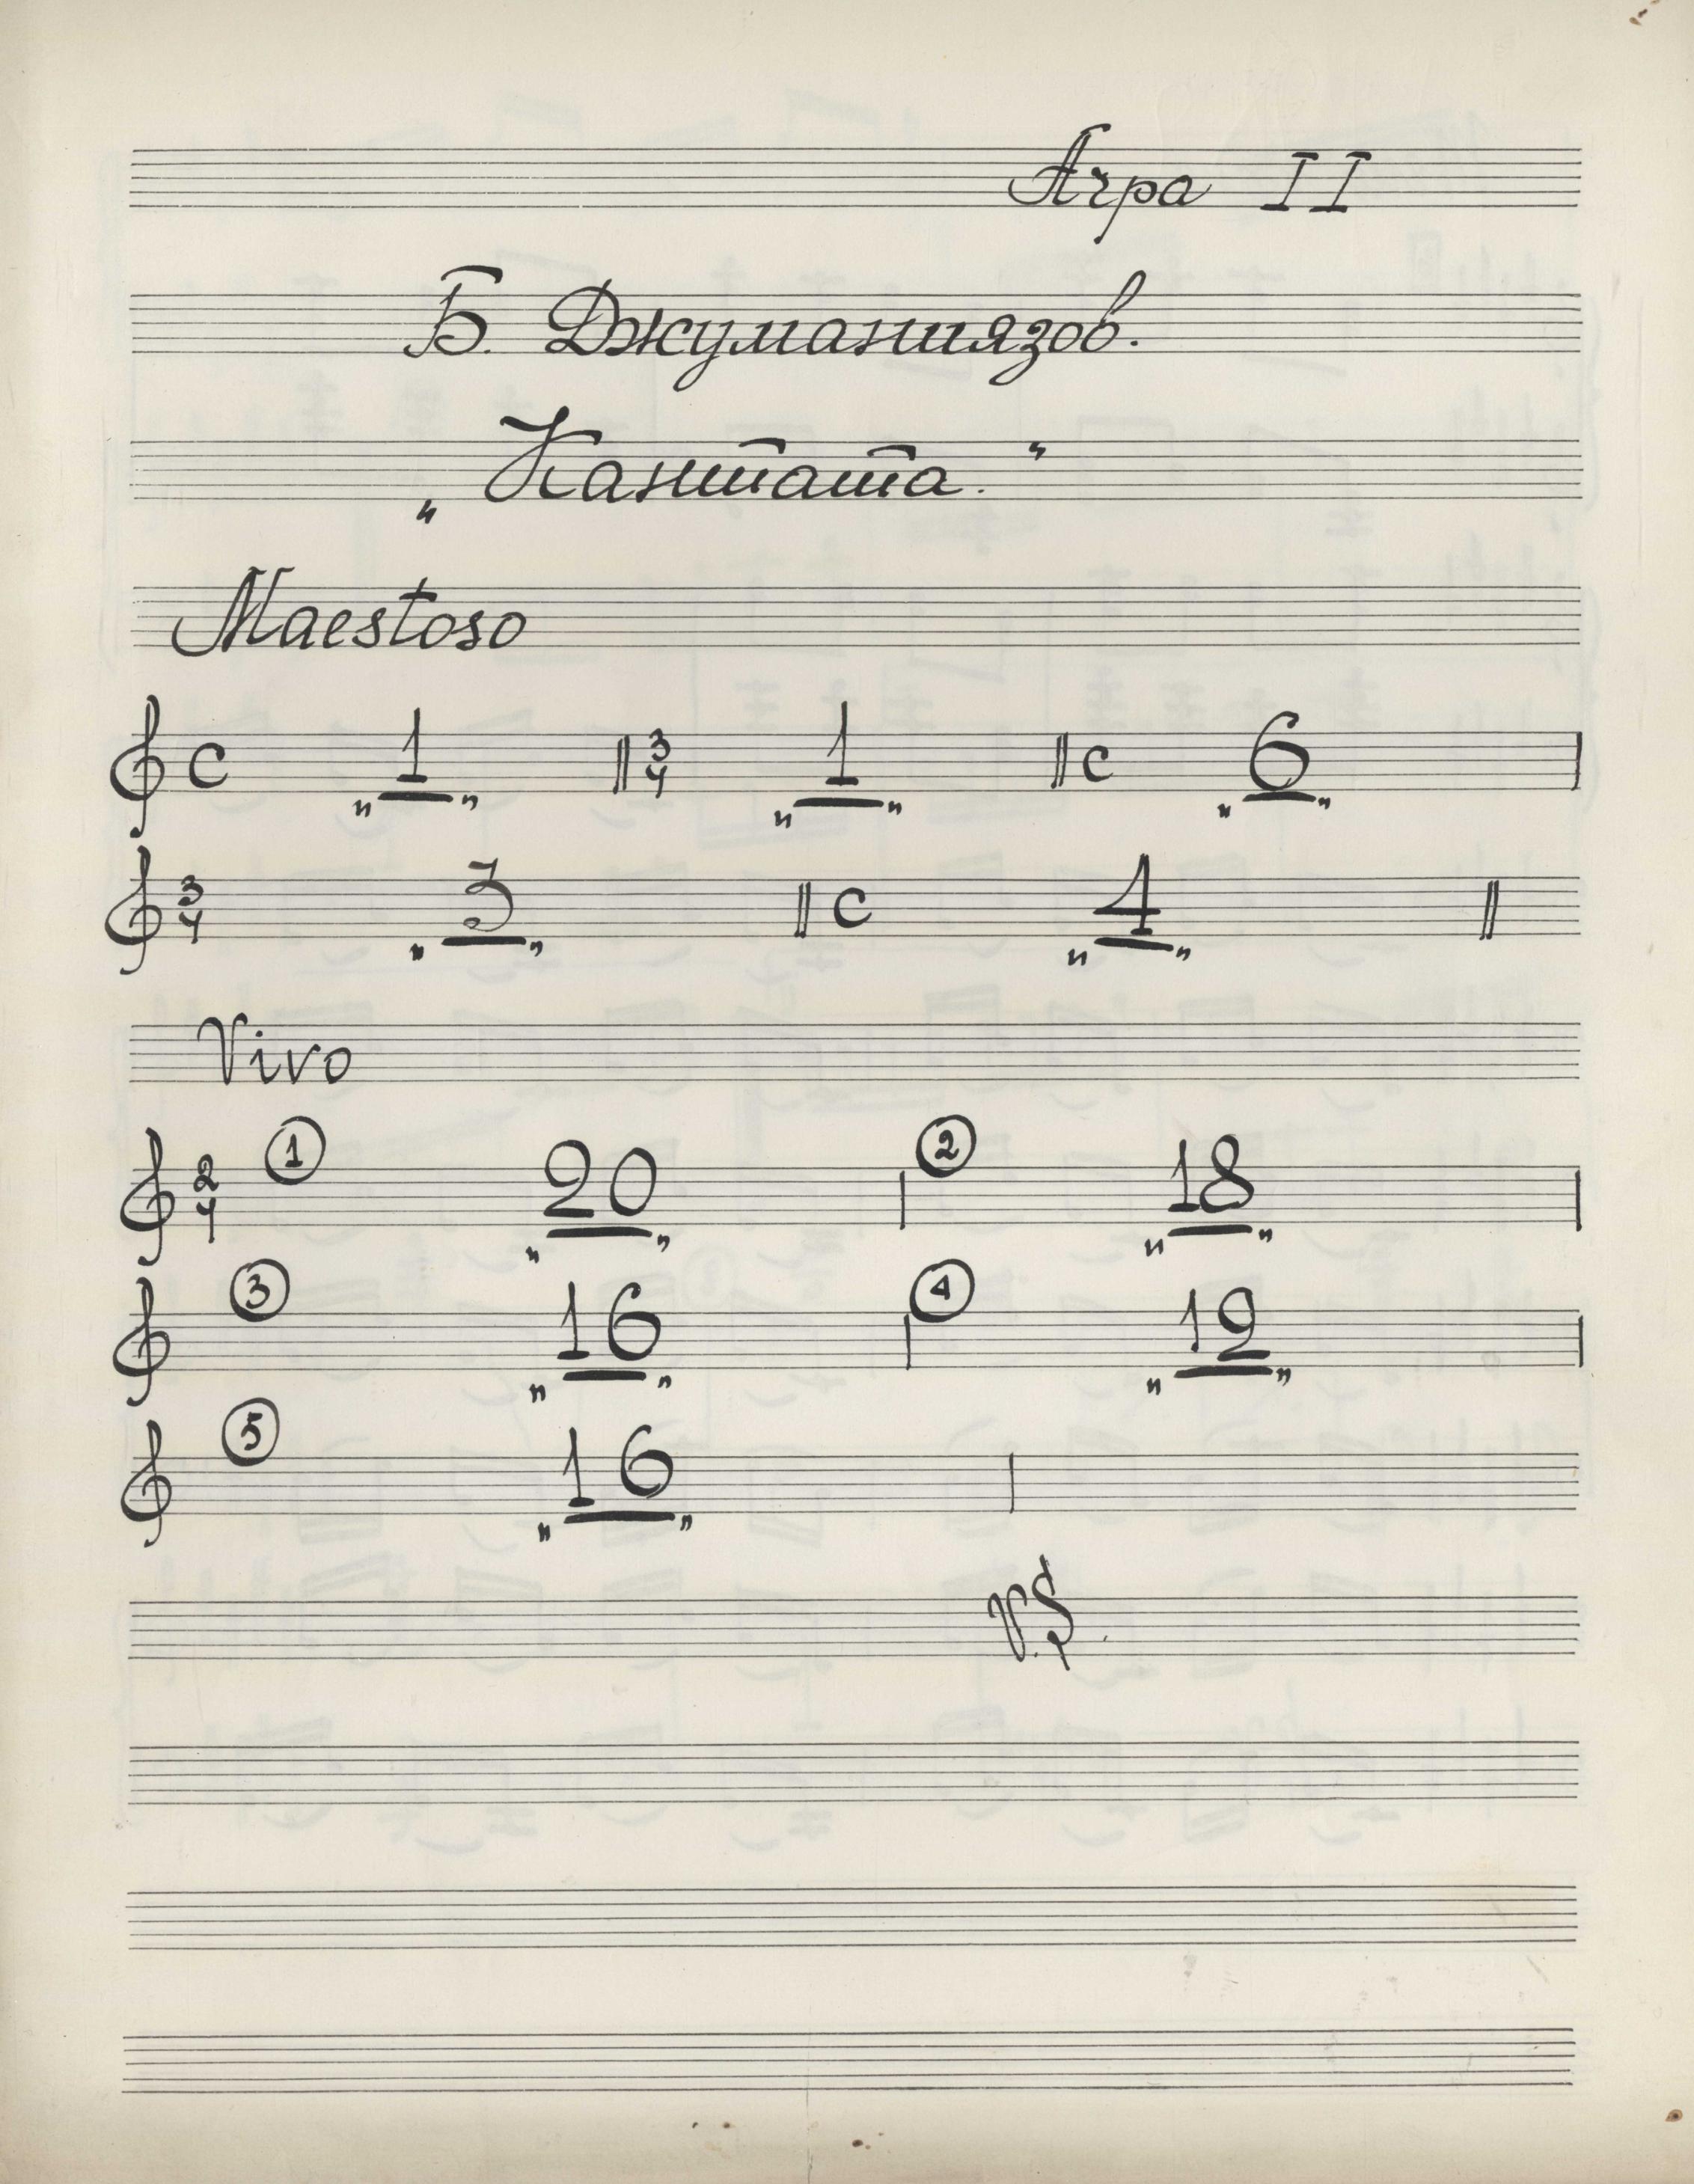 Arpa II
Б. Джуманиязов.
„Кантата."
Maestoso
C „1„ 3/4 „1„ C „6„
3/4 „3„ C „4„
Vivo
2/4 ① „20„ ② „18„
③ „16„ ④ „12„
⑤ „16„
V.S.